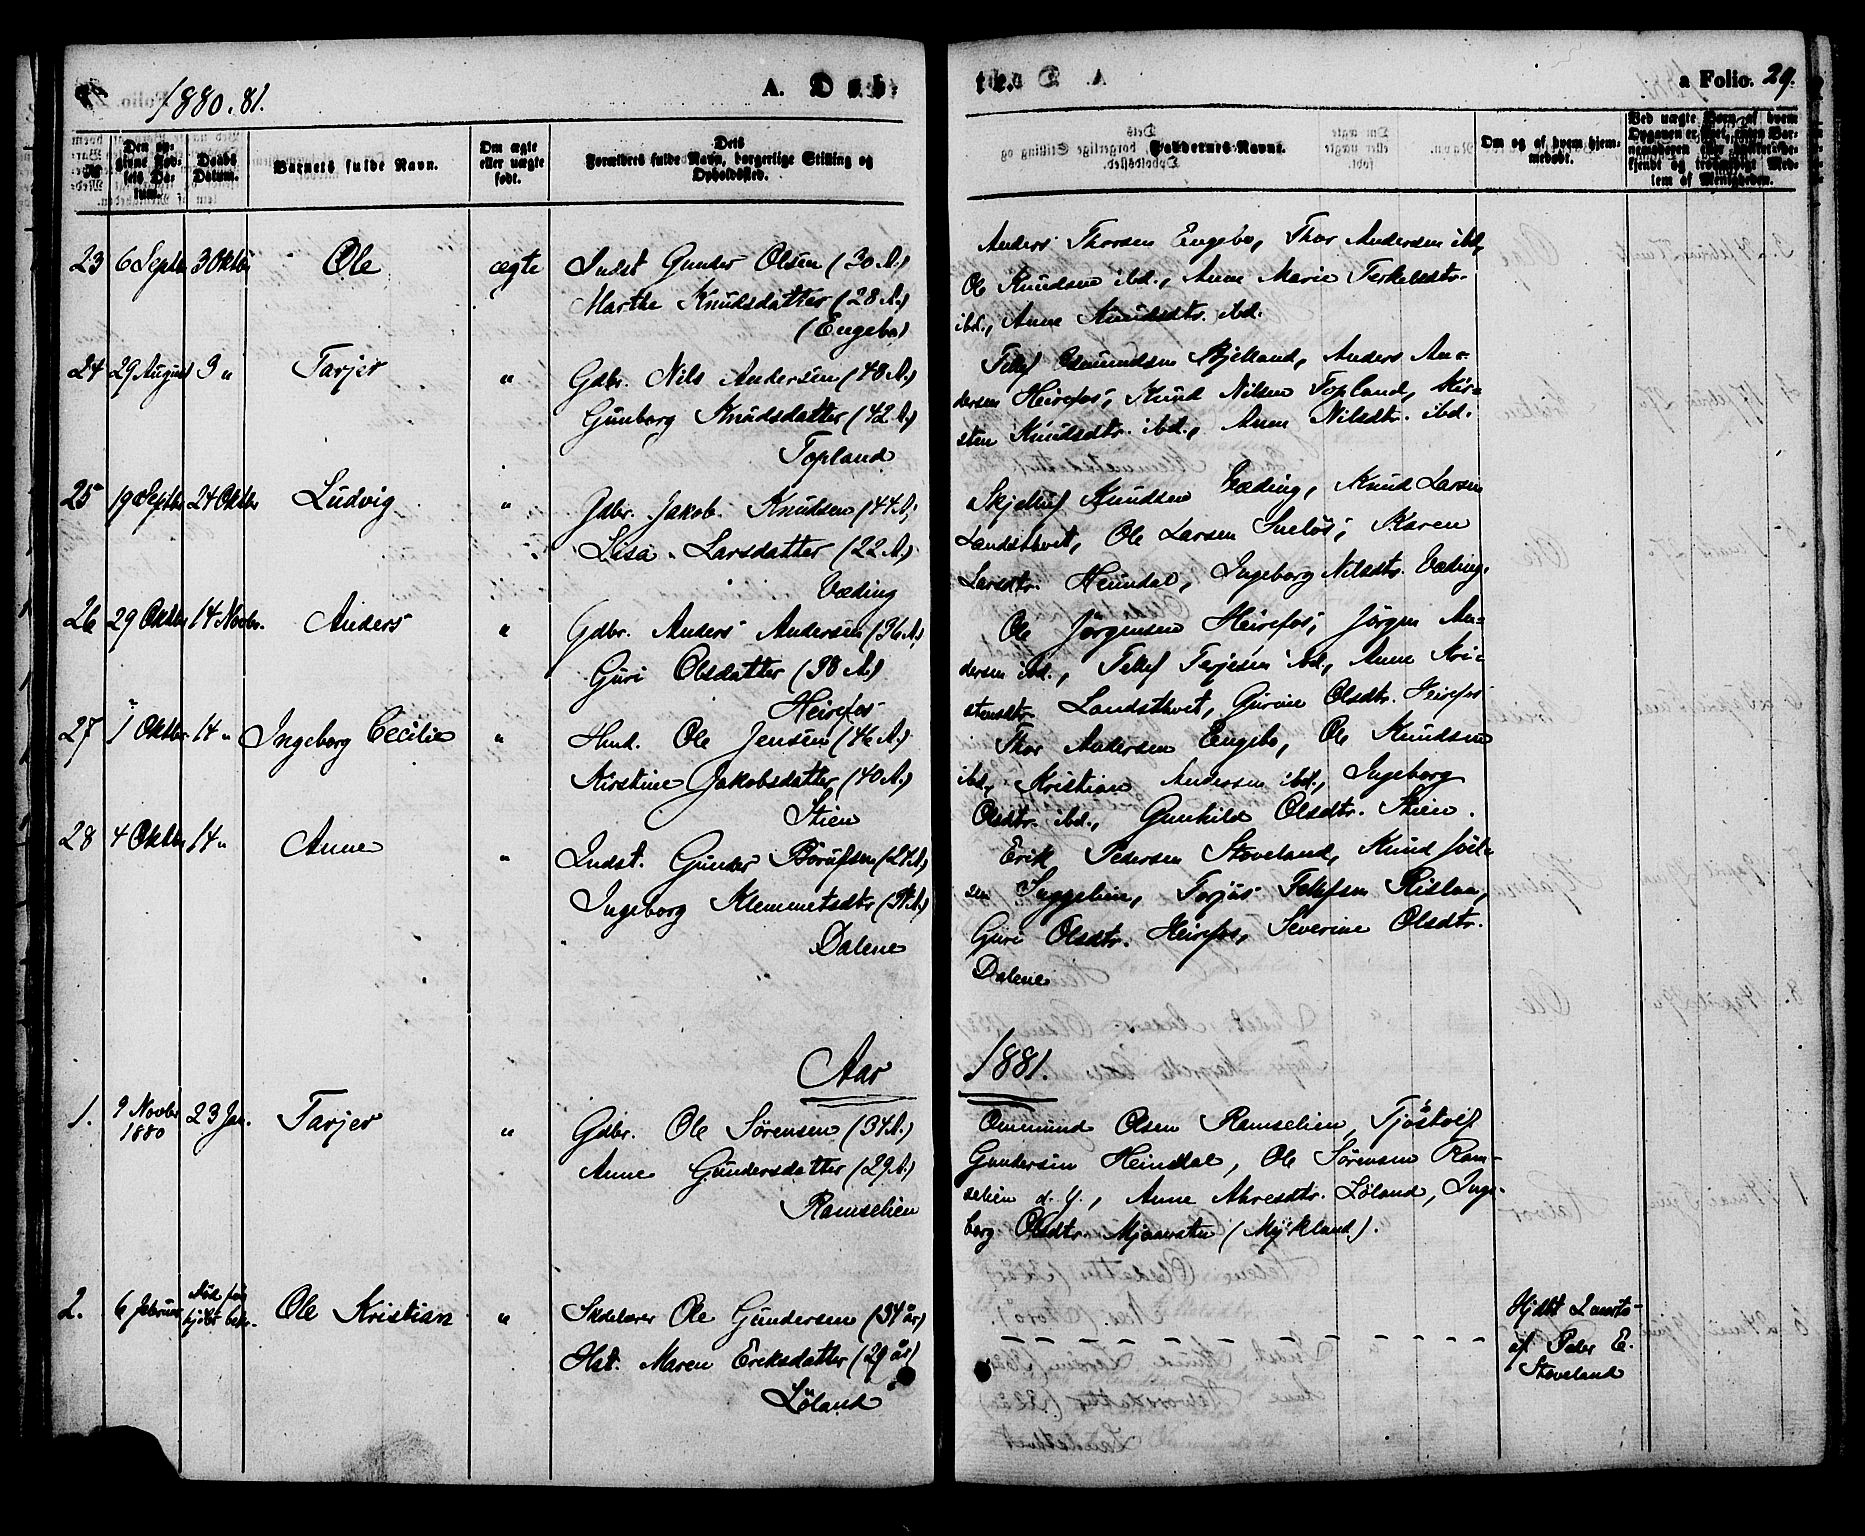 1880.81.
A. Døb-
te.
a Folio. 29.
№
Den an-
givne Fød-
sels Da-
tum.
Daabs
Datum.
Barnets fulde Navn.
Om ægte
eller uægte
født.
Dets
Forældres fulde Navn, borgerlige Stilling og
Opholdssted.
Faddernes Navne.
Om og af hvem hjem-
medøbt.
23 6 Septbr 3 Oktbr Ole ægte Indst Gunder Olsen (30 A.)
Marthe Knudsdatter (28 A.)
(Engebo)
Anders Thorsen Engebo, Thor Andersen ibd,
Ole Knudsen ibd., Anne Marie Terkelsdtr.
ibd., Anne Knudsdtr. ibd.
24 29 August 3 " Tarjer " Gdbr. Nils Andersen (48 A.)
Gunborg Knudsdatter (42 A.)
Topland
Tellef Osmundsen Mjelland, Anders An-
dersen Heirefos, Knud Nilsen Topland, Kir-
sten Knudsdtr. ibd., Anne Nilsdtr. ibd.
25 19 Septbr 24 Oktbr Ludvig " Gdbr. Jakob Knudsen (44 A.)
Lisa Larsdatter (22 A.)
Væding
Skjelluf Knudsen Væding, Knud Larsen
Landsthvet, Ole Larsen Sneløs, Karen
Larsdtr. Heimdal, Ingeborg Nilsdtr. Væding.
26 29 Oktbr 14 Novbr. Anders " Gdbr. Anders Andersen (36 A.)
Guri Olsdatter (38 A.)
Heirefos
Ole Jörgensen Heirefos, Jörgen An-
dersen ibd., Tellef Terjesen ibd., Anne Kri-
stensdtr. Landsthvet, Gurine Olsdtr. Heirefos
27 1 Oktbr 14 " Ingeborg Cecilie " Hmd. Ole Jensen (46 A.)
Kirstine Jakobsdatter (40 A.)
Stien
Thor Andersen Engebo, Ole Knudsen
ibd., Kristian Andersen ibd., Ingeborg
Olsdtr. ibd., Gunhild Olsdtr. Stien.
28 4 Oktbr 14 " Anne " Indst. Gunder Borufsen (27 A.)
Ingeborg Klemmetsdtr
Dalene
Erik Pedersen Stoveland, Knud Joel-
sen Suggelien, Torjus Tellefsen Rislaa,
Guri Olsdtr. Heirefos, Severine Olsdtr.
Dalene
Aar 1881.
1. 9 Novbr
1880 23 Jan. Tarjer " Gdbr. Ole Sörensen (34 A.)
Anne Gundersdatter (29 A.)
Ramselien
Ommund Olsen Ramselien, Tjöstolf
Gundersen Heimdal, Ole Sörensen Ram-
selien d. y., Anne Ahresdtr. Löland, Inge-
borg Olsdtr. Mjaavatn (Mykland).
2. 6 Februar Ole Kristian " Skolelærer Ole Gundersen (34 år)
Hst. Maren Eriksdatter (29 år)
Löland
Hjdbt
af Peder E.
Stoveland